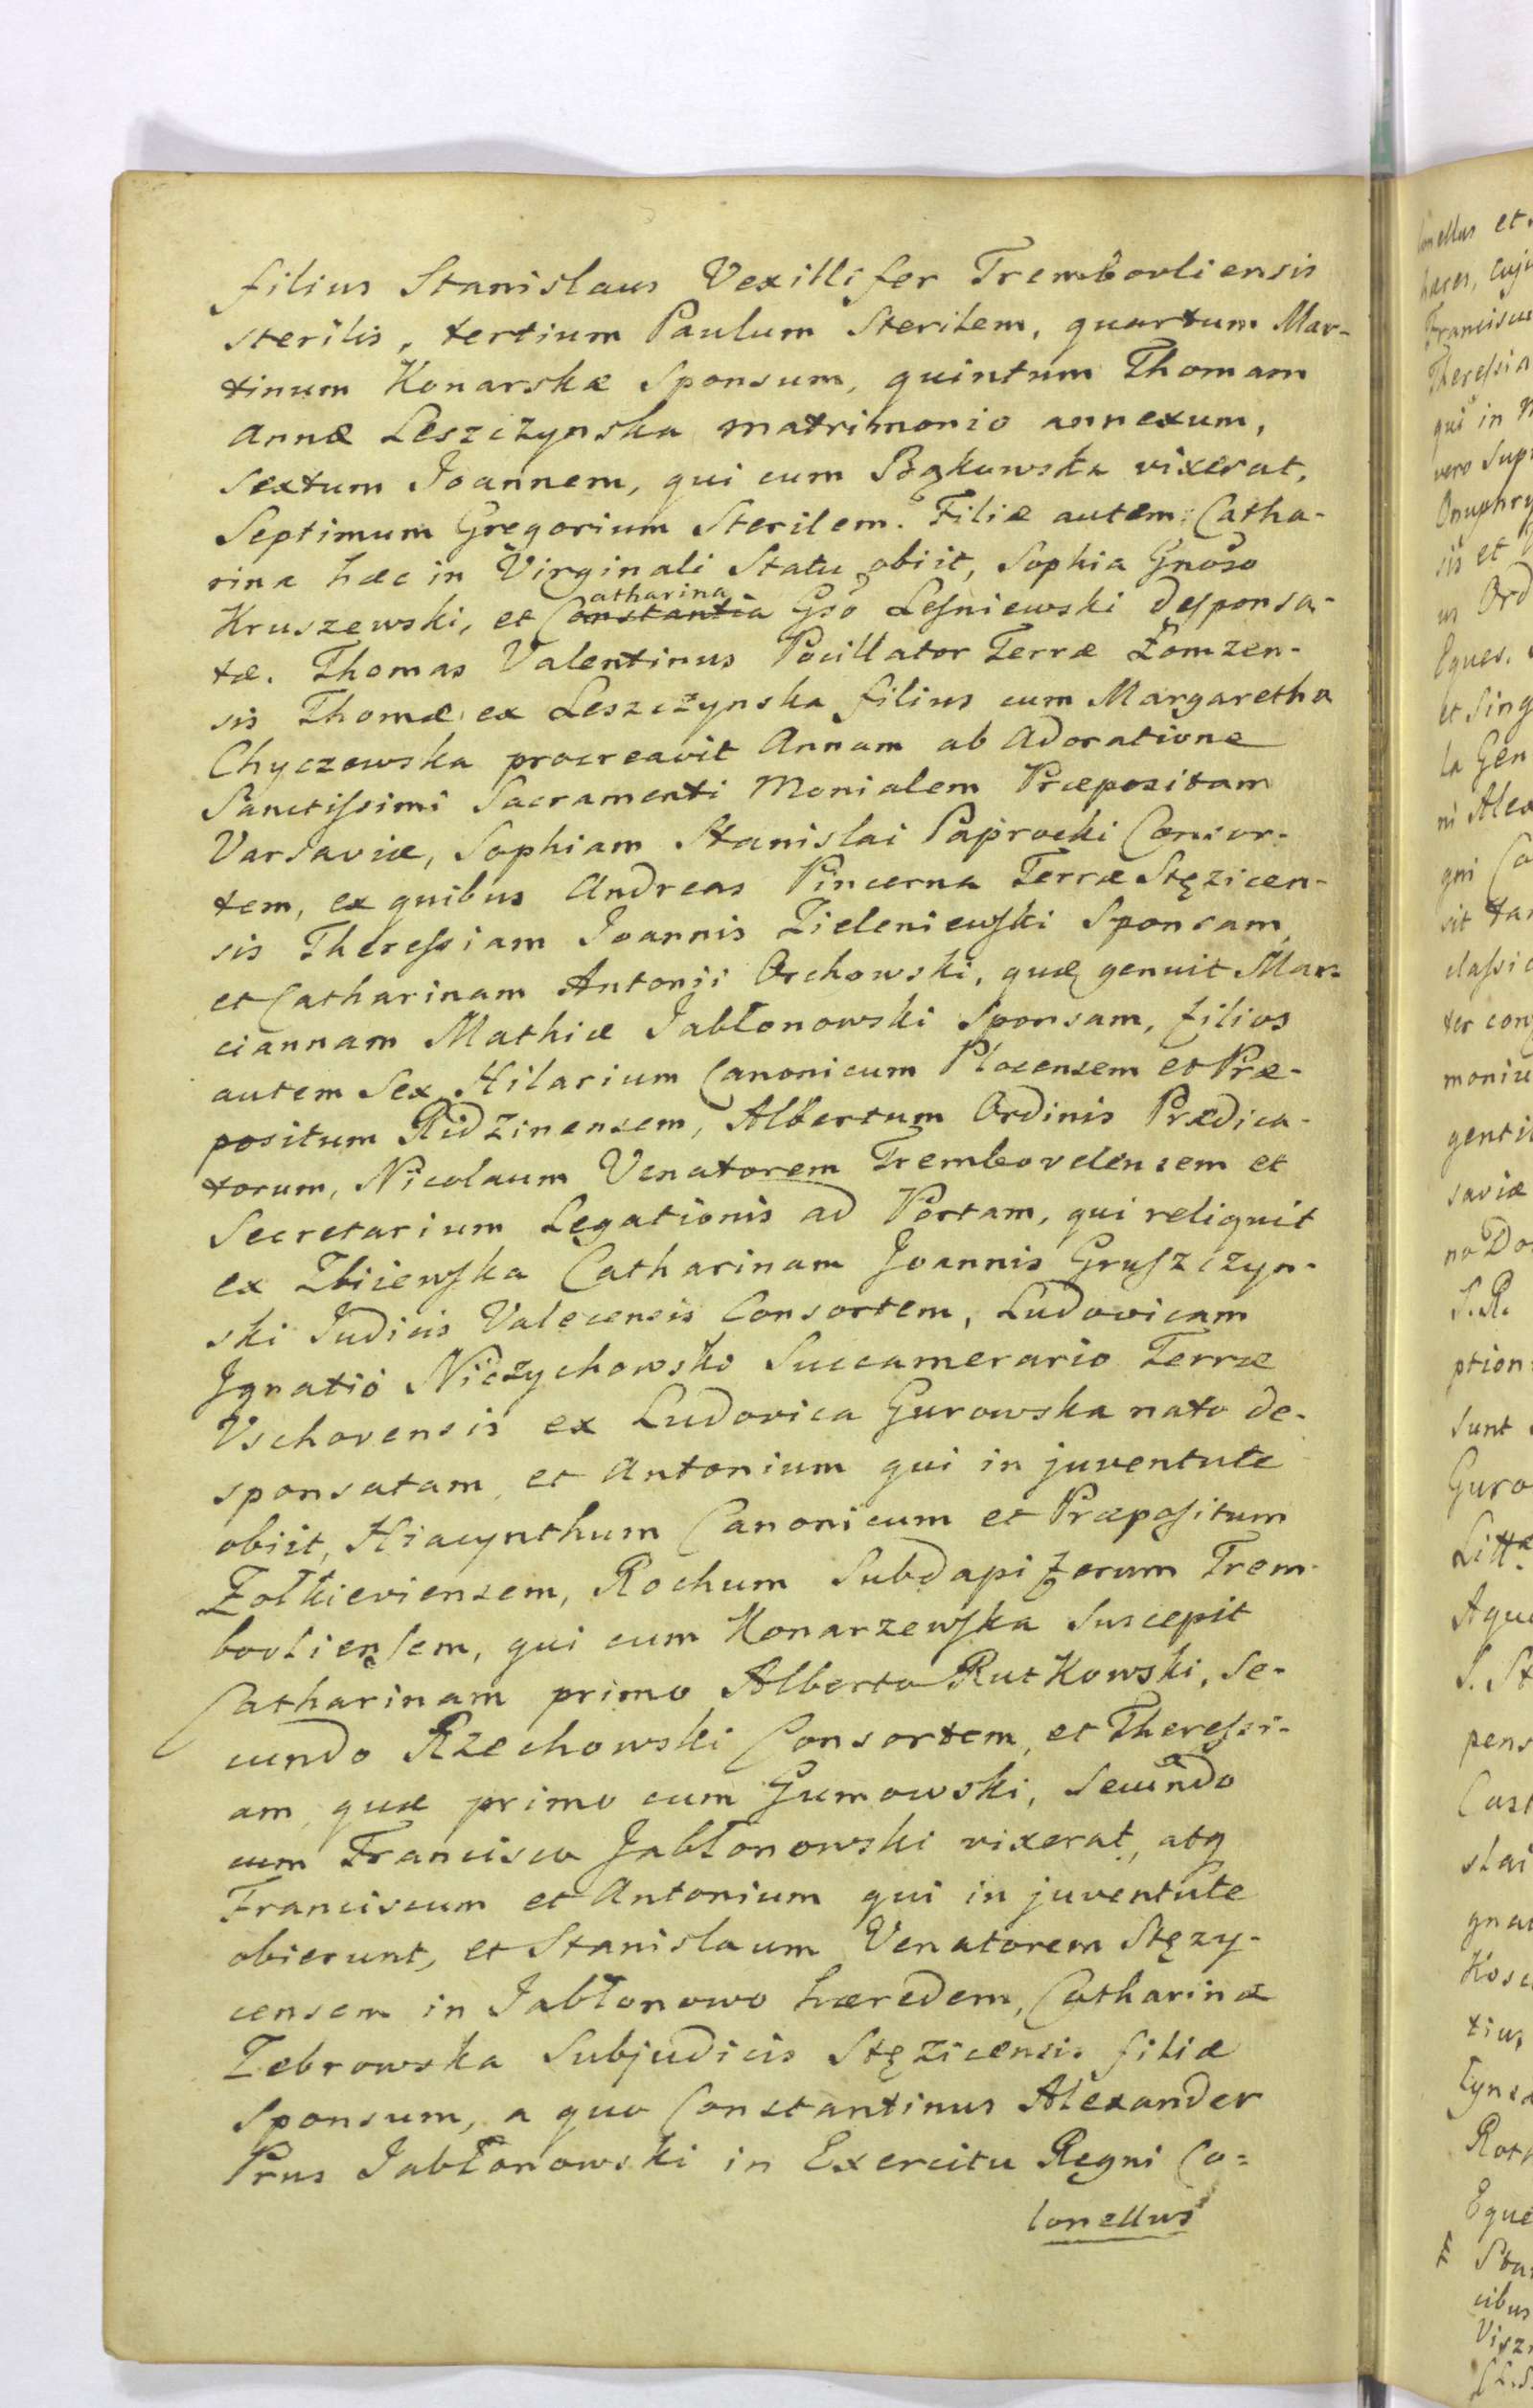 filius Stanislaus Vexillifer Trembovliensis
sterilis, tertium Paulum Sterilem, quartum Mar-
tinum Konarskæ Sponsum, quintum Thomam
Annæ Leszczynska matrimonio annexum,
Sextum Joannem, qui cum Bąkowska vixerat,
Septimum Gregorium Sterilem. Filiæ autem: Catha-
rina hæc in Virginali Statu obiit, Sophia Gnoso
Kruszewski, et Catharina Gso Leśniewski desponsa-
tæ. Thomas Valentinus Pocillator Terræ Łomzen-
sis Thomæ ex Leszczynska filius cum Margaretha
Chyczewska procreavit Annam ab Adoratione
Sanctissimi Sacramenti Monialem Præpositam
Varsaviæ, Sophiam Stanislai Paprocki Consor-
tem, ex quibus Andreas Pincerna Terræ Stęzicen-
sis Theressiam Joannis Zieleniewski Sponsam,
et Catharinam Antonji Orchowski, quæ genuit Mar-
ciannam Mathiæ Jabłonowski Sponsam, filios
autem Sex, Hilarium Canonicum Plocensem et Præ-
positum Ridzinensem, Albertum Ordinis Prædica-
torum, Nicolaum Venatorem Trembovelensem et
Secretarium Legationis ad Portam, qui reliquit
ex Zbiiewska Catharinam Joannis Gruszczyn-
ski Judicis Valecensis Consortem, Ludovicam
Ignatio Niezychowski Succamerario Terræ
Vschovensis ex Ludovica Gurowska nato de-
sponsatam, et Antonium qui in juventute
obiit, Hiacynthum Canonicum et Præpositum
Zołkieviensem, Rochum Subdapiferum Trem-
bovliensem, qui cum Konarzewska Suscepit
Catharinam primo Alberto Rutkowski, Se-
cundo Rzechowski Consortem, et Theressi-
am, quæ primo cum Gumowski, Secundo
cum Francisco Jabłonowski vixerat, atq
Franciscum et Antonium qui in juventute
obierunt, et Stanislaum Venatorem Stęzy-
censem in Jabłonowo hæredem, Catharinæ
Zebrowska Subjudicis Stęzicensis filiæ
Sponsum, a quo Constantinus Alexander
Prus Jabłonowski in Exercitu Regni Co=
lonellus